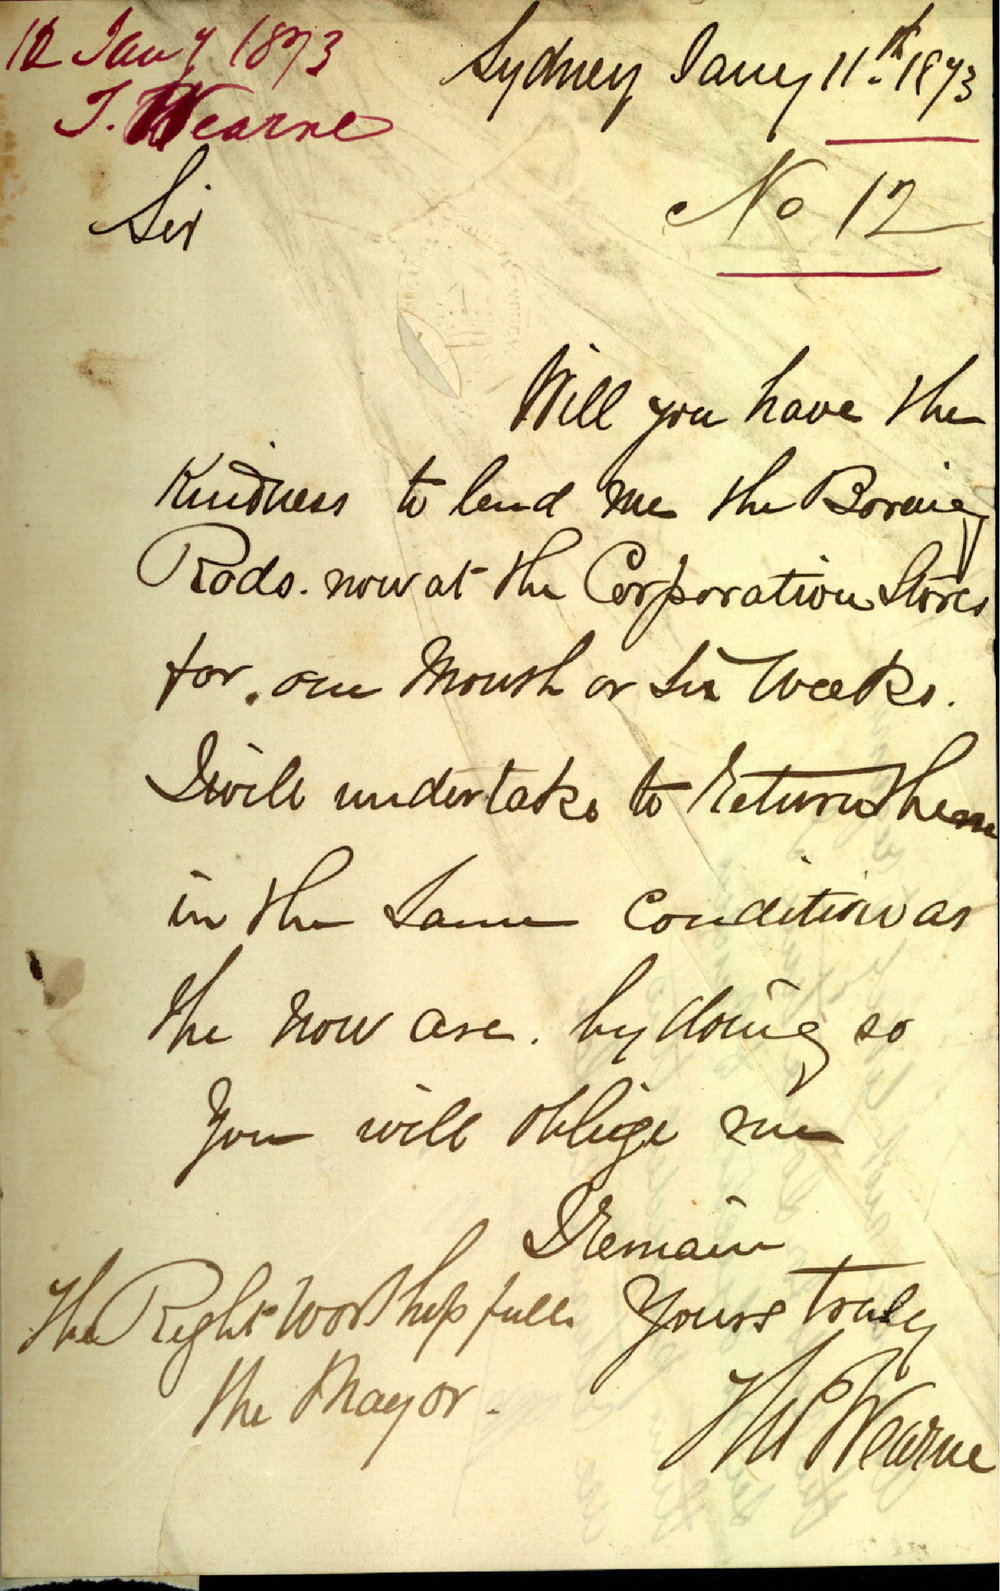 12 Jany 1873
T. Wearne
Sydney Jany 11th 1873
No 12
Sir
Will you have the
Kindness to lend me the Boreing
Rods. now at the Corporation Stores
for. one Month or Six Weeks.
I will undertake to Return them
in the Same Condition as
the now are. by doing so
You will oblige me
I Remain
Yours truly
The Right Worshipfull
the Mayor.
Thos Wearne